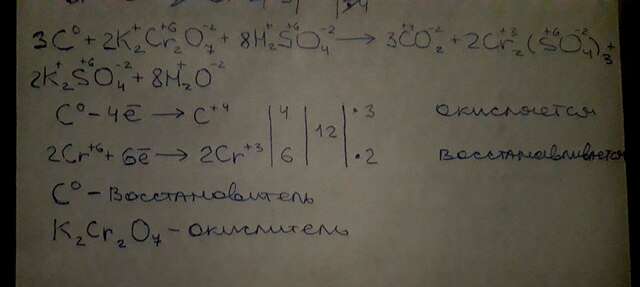 3C⁰ + 2K₂⁺Cr₂⁺⁶O₇⁻² + 8H₂⁺S⁺⁶O₄⁻² → 3C⁺⁴O₂⁻² + 2Cr₂⁺³(S⁺⁶O₄⁻²)₃ +
2K₂⁺S⁺⁶O₄⁻² + 8H₂⁺O⁻²
C⁰ - 4ē → C⁺⁴ | 4 | | · 3 окисляется
12
2Cr⁺⁶ + 6ē → 2Cr⁺³ | 6 | | · 2 восстанавливается
C⁰ - восстановитель
K₂Cr₂O₇ - окислитель